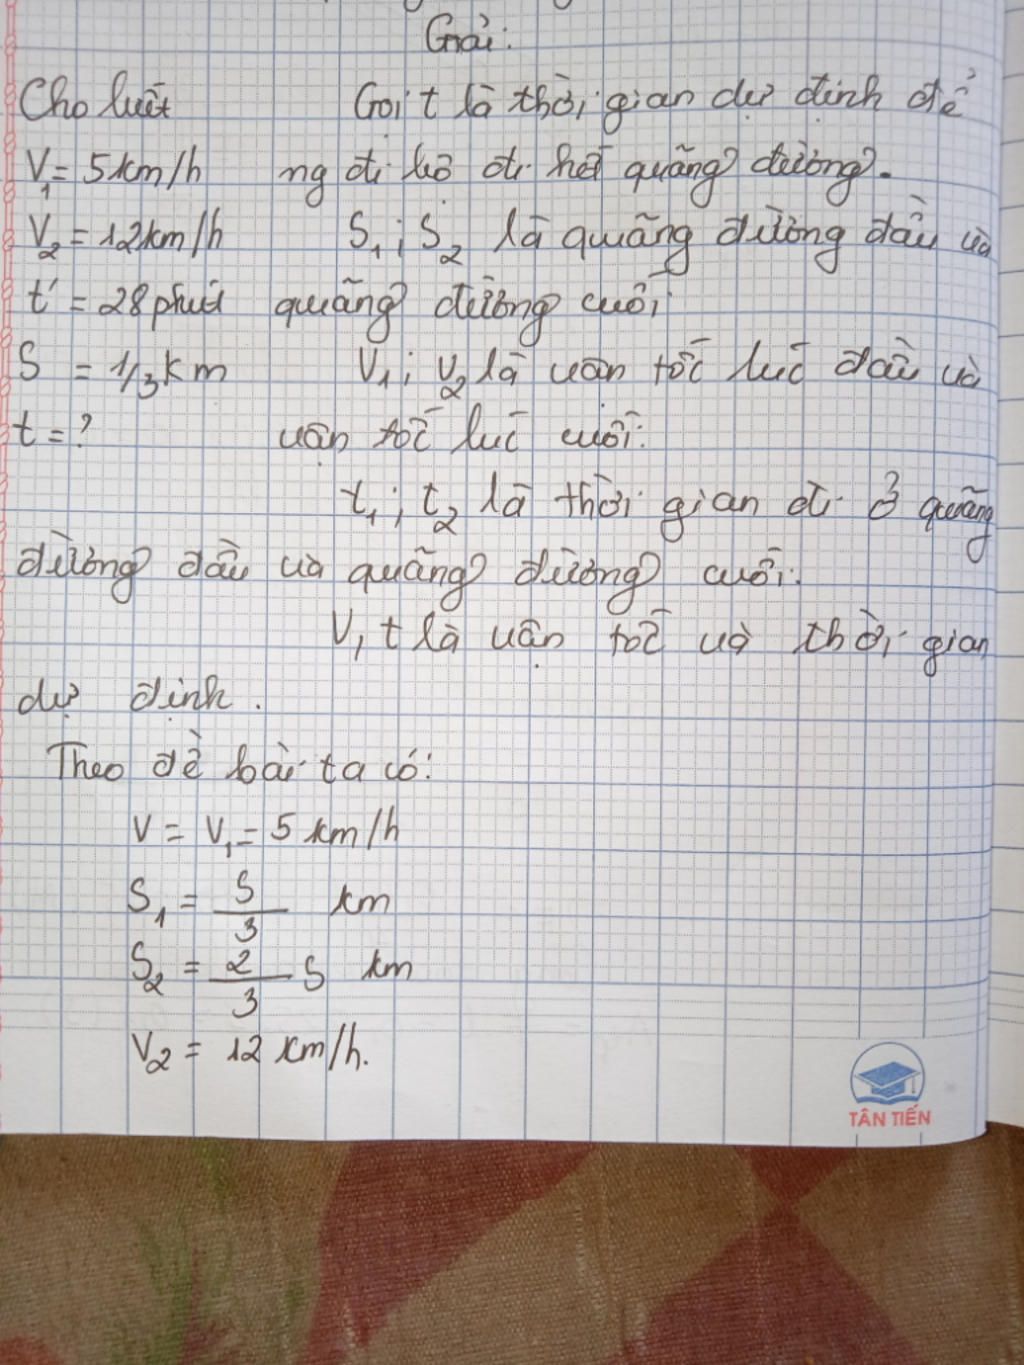 Giải:
Cho biết Gọi t là thời gian dự định để
V₁ = 5km/h ng đi bộ đi hết quãng đường.
V₂ = 12km/h S₁; S₂ là quãng đường đầu và
t' = 28 phút quãng đường cuối
S = 1/3 km V₁; V₂ là vận tốc lúc đầu và
t = ? vận tốc lúc cuối.
t₁; t₂ là thời gian đi ở quãng
đường đầu và quãng đường cuối.
V, t là vận tốc và thời gian
dự định.
Theo đề bài ta có:
V = V₁ = 5 km/h
S₁ = S/3 km
S₂ = 2/3 S km
V₂ = 12 km/h.
TÂN TIẾN